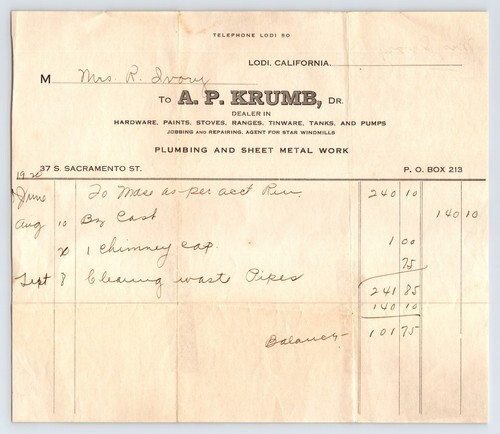 TELEPHONE LODI 50
LODI, CALIFORNIA.
M Mrs. R. Ivory
TO A. P. KRUMB, DR.
DEALER IN
HARDWARE, PAINTS, STOVES, RANGES, TINWARE, TANKS, AND PUMPS
JOBBING AND REPAIRING, AGENT FOR STAR WINDMILLS
PLUMBING AND SHEET METAL WORK
37 S. SACRAMENTO ST. P. O. BOX 213
19
June To Mdse as per acct Ren 240 10
Aug 10 By Cash 140 10
1 chimney cap. 1 00
75
Sept 8 Clearing waste Pipes
241 85
140 10
Balance 101 75